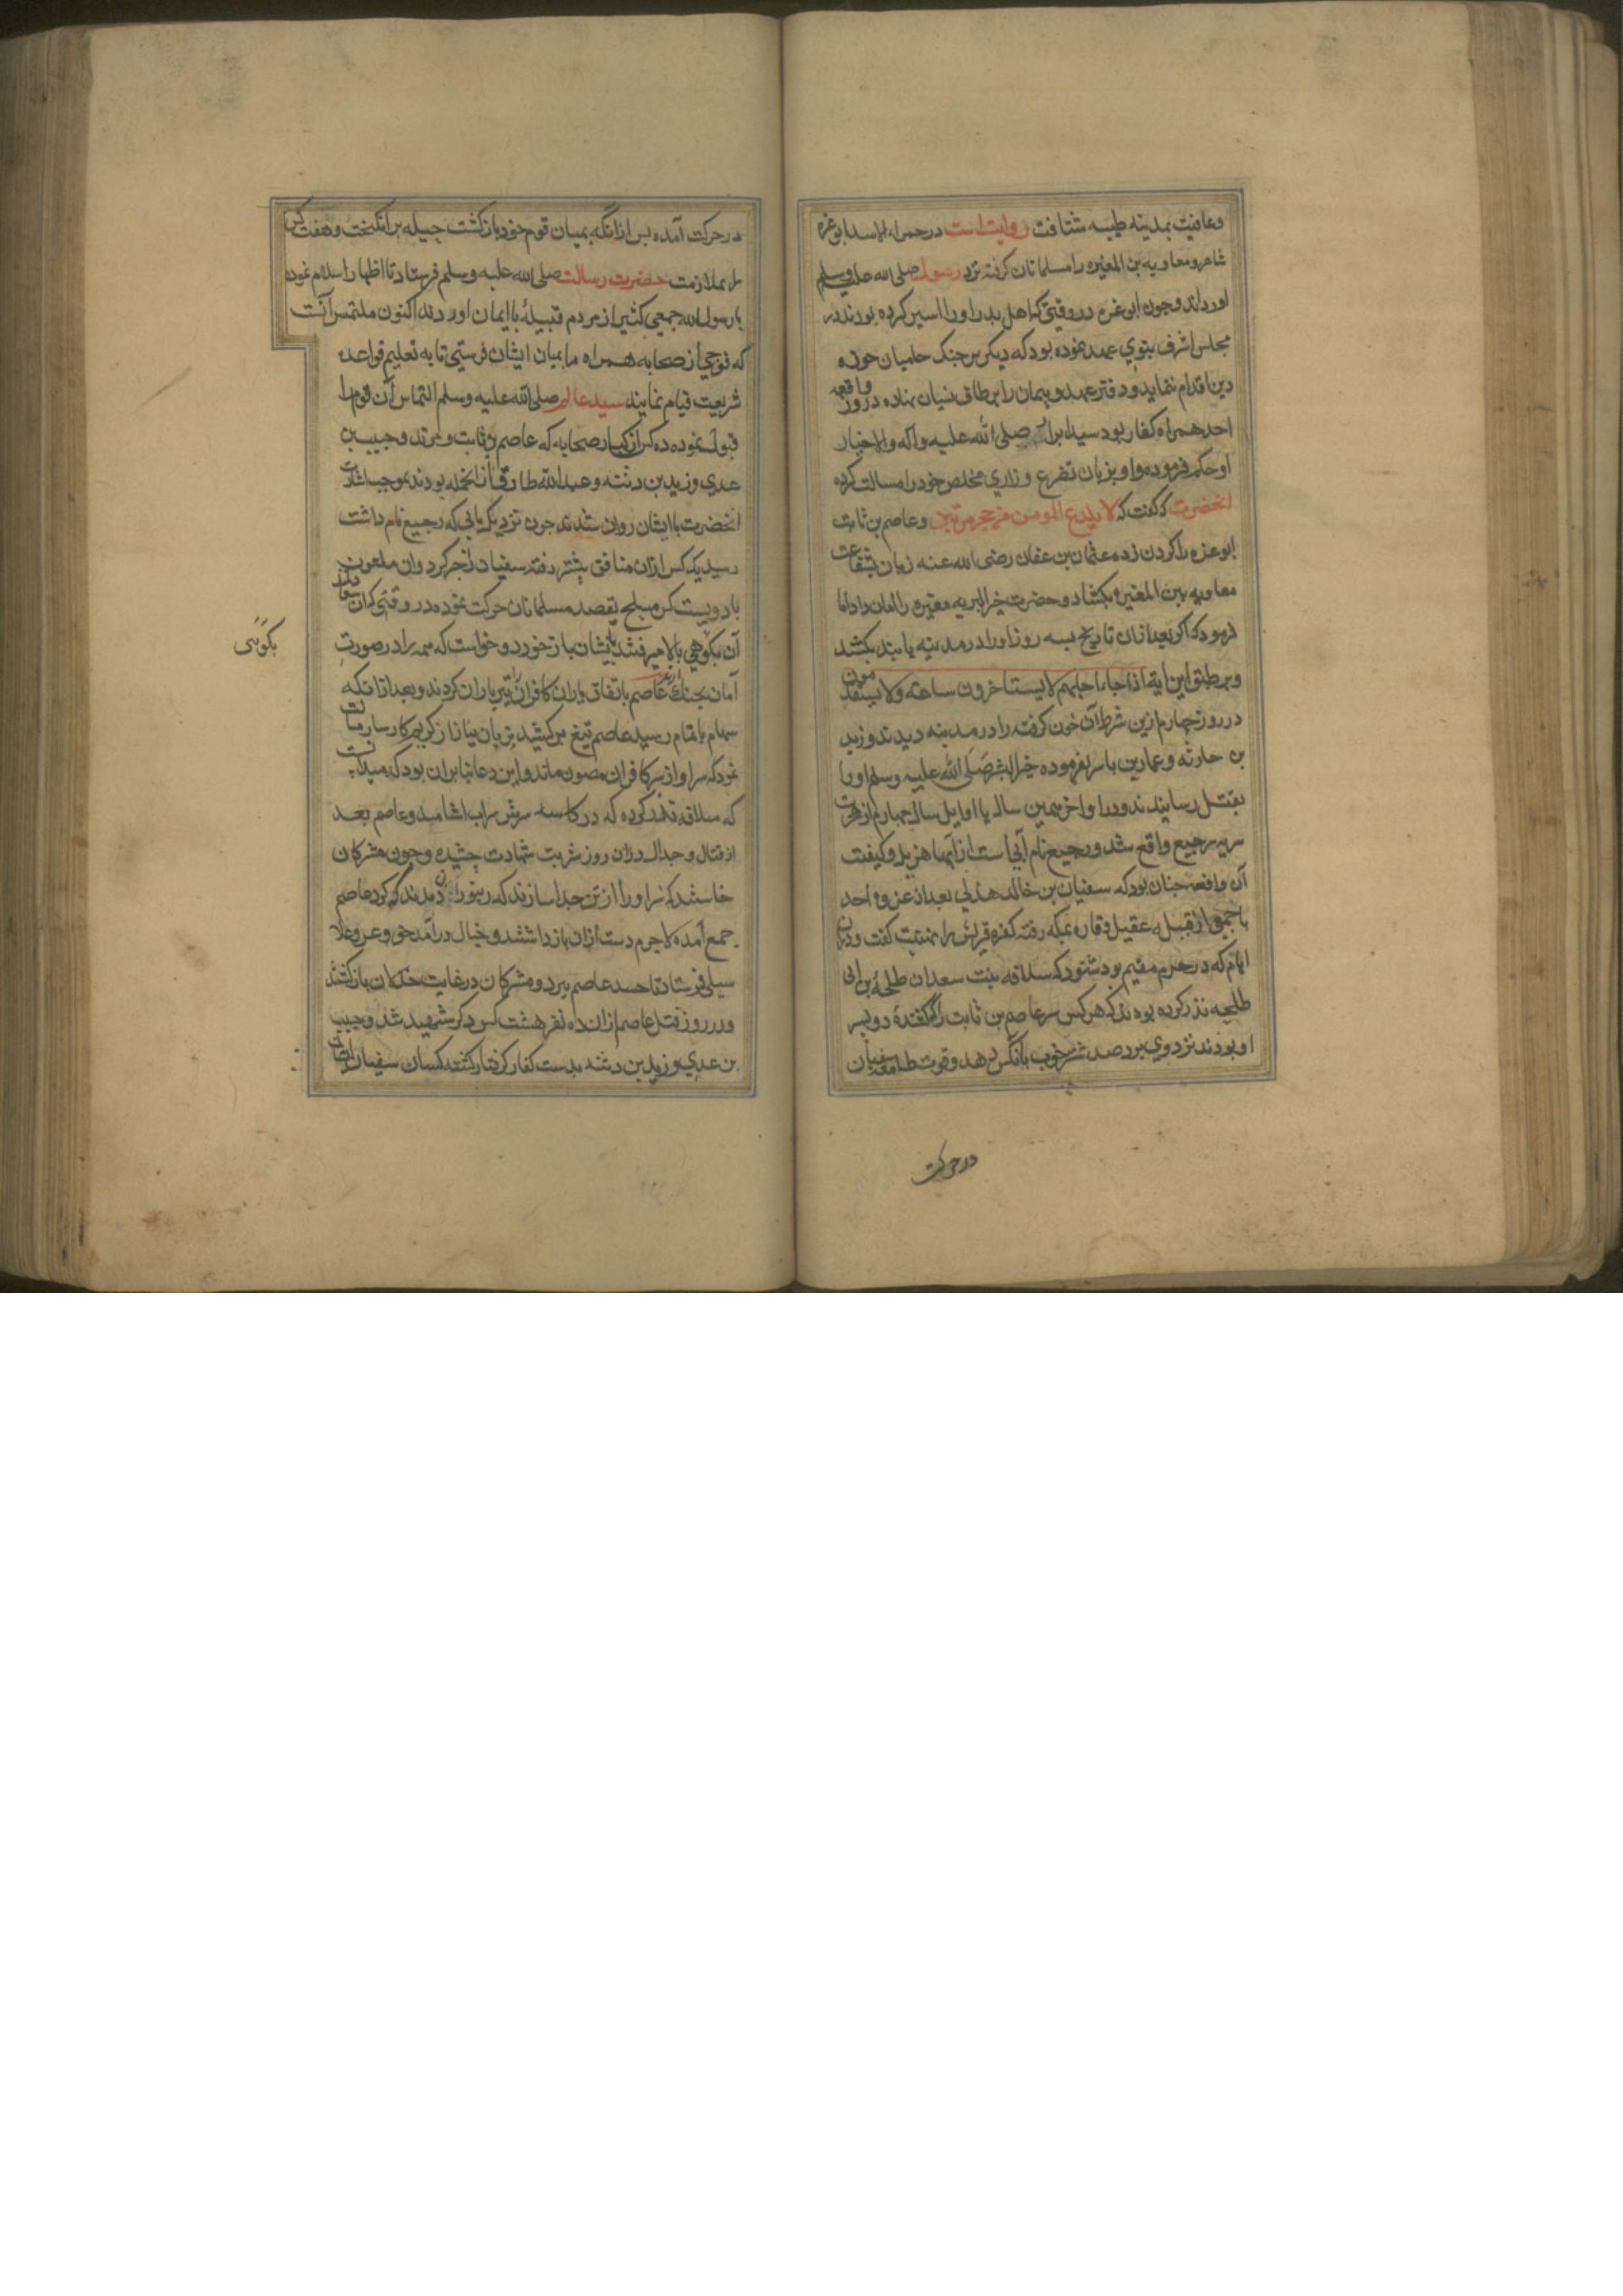 وعافیت بمدینه طیبه شتافت روایتست در حمراء الاسد ابو غره
شاعر و معاویه بن المغیره را مسلمانان گرفته نزد رسول صلی الله علیه وسلم
اوردند و چون ابو غره در وقتی که اهل بدر او را اسیر کرده بودند در
مجلس اشرف نبوی عهد نموده بود که دیکر بر جنک حامیان حوزه
دین اقدام نماید و دفتر عهد و پیمان را بر طاق نسیان نهاده در روز واقعه
احد همراه کفار بود سید ابرار صلی الله علیه واله والاخیار
او حکم فرموده واو بزبان تضرع و زاری مخلص خود را مسالت کرده
انحضرت کفت که لا یلدغ المومن من جحر مرتین وعاصم بن ثابت
ابو غره را کردن زده عثمان بن عفان رضی الله عنه زبان بشفاعت
معاویه بن المغیره بکشاد و حضرت خیر البریه مغیره را امان داد اما
فرمود که اکر بعد ازان تاریخ بسه روز او را در مدینه یابند بکشند
و بر طبق این ایه اذا جاء اجلهم لا یستاخرون ساعته ولا یستقدمون
در روز چهارم ازین شرط آن خون کرفته را در مدینه دیدند و زید
بن حارثه و عمار بن یاسر بفرموده خیر البشر صلی الله علیه وسلم او را
بقتل رسانیدند و در اواخر همین سال یا اوایل سال چهارم از هجرت
سریه رجیع واقع شد و رجیع نام آبی است از آبهاء هزیل و کیفیت
آن واقعه چنان بود که سفیان بن خالد هذلی بعد از غزوه احد
با جمعی از قبیله عقیل و قاره بمکه رفته کفره قریش را تهنیت کفت و دران
ایام که در حرم مقیم بود شنود که سلافه بنت سعد ان طلحة بن ابی
طلحه نذر کرده بودند که هرکس سر عاصم بن ثابت را که کشندۀ دو پسر
او بودند نزد وی برد صد شتر خوب بانکس دهد و قوت طامعه سفیان
در حرکت
در حرکت آمده پس ازانکه بمیان قوم خود بازکشت حیله برانکیخت و هفت کس
را بملازمت حضرت رسالت صلی الله علیه وسلم فرستاد تا اظهار اسلام نموده
یا رسول الله جمعی کثیر از مردم قبیلۀ ما ایمان اوردند اکنون ملتمس آنست
که فوجی از صحابه همراه ما بمیان ایشان فرستی تا به تعلیم قواعد
شریعت قیام نمایند سید عالم صلی الله علیه وسلم التماس آن قوم را
قبول نموده ده کس از کبار صحابه که عاصم بن ثابت و مرثد و خبیب بن
عدی و زید بن دثنه و عبدالله طارق ازانجمله بودند بموجب اشارت
انحضرت با ایشان روان شدند چون نزدیک بابی که رجیع نام داشت
رسید یک کس ازان منافق پیشتر رفته سفیان را خبر کرد وان ملعون
با دویست کس مسلح بقصد مسلمانان حرکت نموده در وقتی که ان سعادتمندان
آن بکوهی بالا میرفتند بایشان باز خورد و خواست که همه را در صورت
آمان بچنک آرند عاصم باتفاق یاران کافران را تیرباران کردند و بعد ازانکه
سهام باتمام رسید عاصم تیغ برکشید بزبان نیاز از کریم کارساز مسالت
نمود که سر او از سر کافران مصون ماند و این دعا بنا بران بود که میدانست
که سلافه نذر کرده که در کاسه سرش شراب اشامد و عاصم بعد
از قتال و جدال دران روز شربت شهادت چشیده و چون مشرکان
خاستند که سر او را از تن جدا سازند که زنبوران دمدند که کرد عاصم
جمع آمده لاجرم دست ازان بازداشتند و خیال درآمد حق و عز و علا
سیلی فرستاد تا جسد عاصم ببرد و مشرکان در غایت خذلان بازکشتند
و در روز قتل عاصم ازان ده نفر هشت کس دکر شهید شد و خبیب
بن عدی و زید بن دشد بدست کفار کرفتار کشتند کسان سفیان ایشان
بکوَنَی